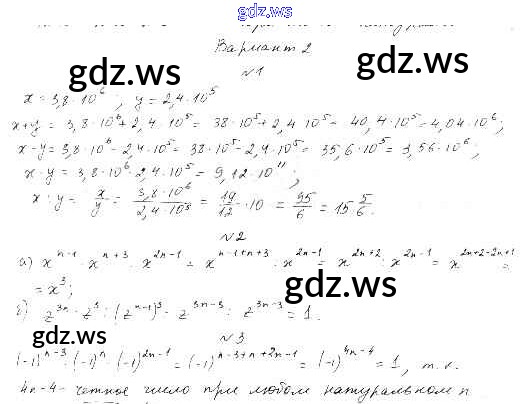 gdz.ws
Вариант 2
gdz.ws gdz.ws
№1
x = 3,8·10⁶; y = 2,4·10⁵
x+y = 3,8·10⁶+2,4·10⁵ = 38·10⁵+2,4·10⁵ = 40,4·10⁵ = 4,04·10⁶;
x-y = 3,8·10⁶-2,4·10⁵ = 38·10⁵-2,4·10⁵ = 35,6·10⁵ = 3,56·10⁶;
x·y = 3,8·10⁶·2,4·10⁵ = 9,12·10¹¹;
x:y = x/y = 3,8·10⁶/2,4·10⁵ = 19/12·10 = 95/6 = 15 5/6.
№2
а) xⁿ⁻¹·xⁿ⁺³:x²ⁿ⁻¹ = xⁿ⁻¹⁺ⁿ⁺³:x²ⁿ⁻¹ = x²ⁿ⁺²:x²ⁿ⁻¹ = x²ⁿ⁺²⁻²ⁿ⁺¹ =
= x³;
gdz.ws
gdz.ws
№3
(-1)ⁿ⁻³·(-1)ⁿ·(-1)²ⁿ⁻¹ = (-1)ⁿ⁻³⁺ⁿ⁺²ⁿ⁻¹ = (-1)⁴ⁿ⁻⁴ = 1, т.к.
4n-4 - четное число при любом натуральном n
gdz.ws